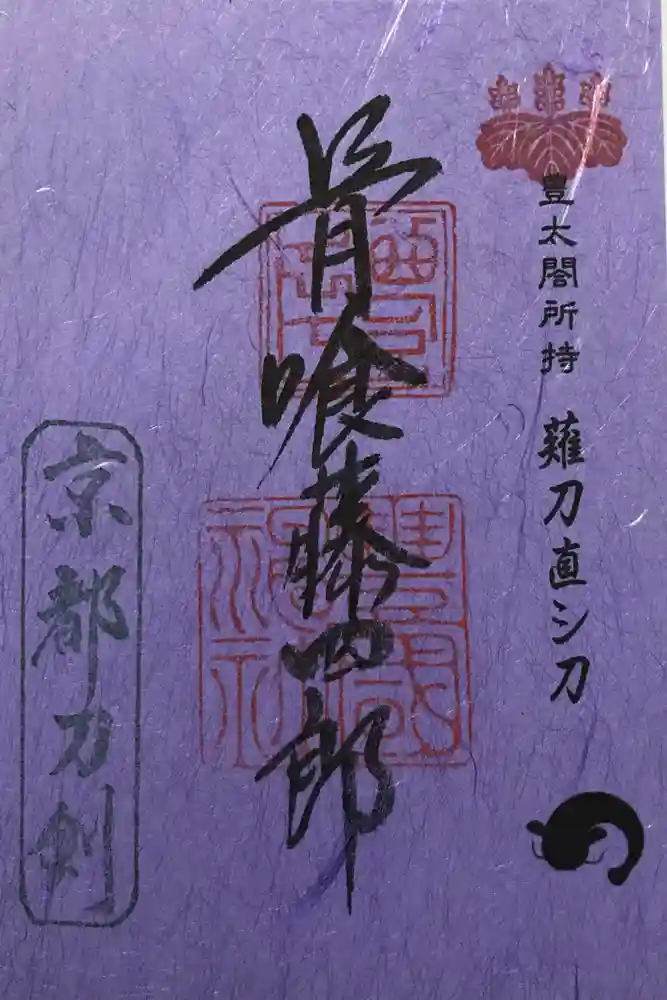 豊太閤所持 薙刀直シ刀
骨喰藤四郎
京都刀剣